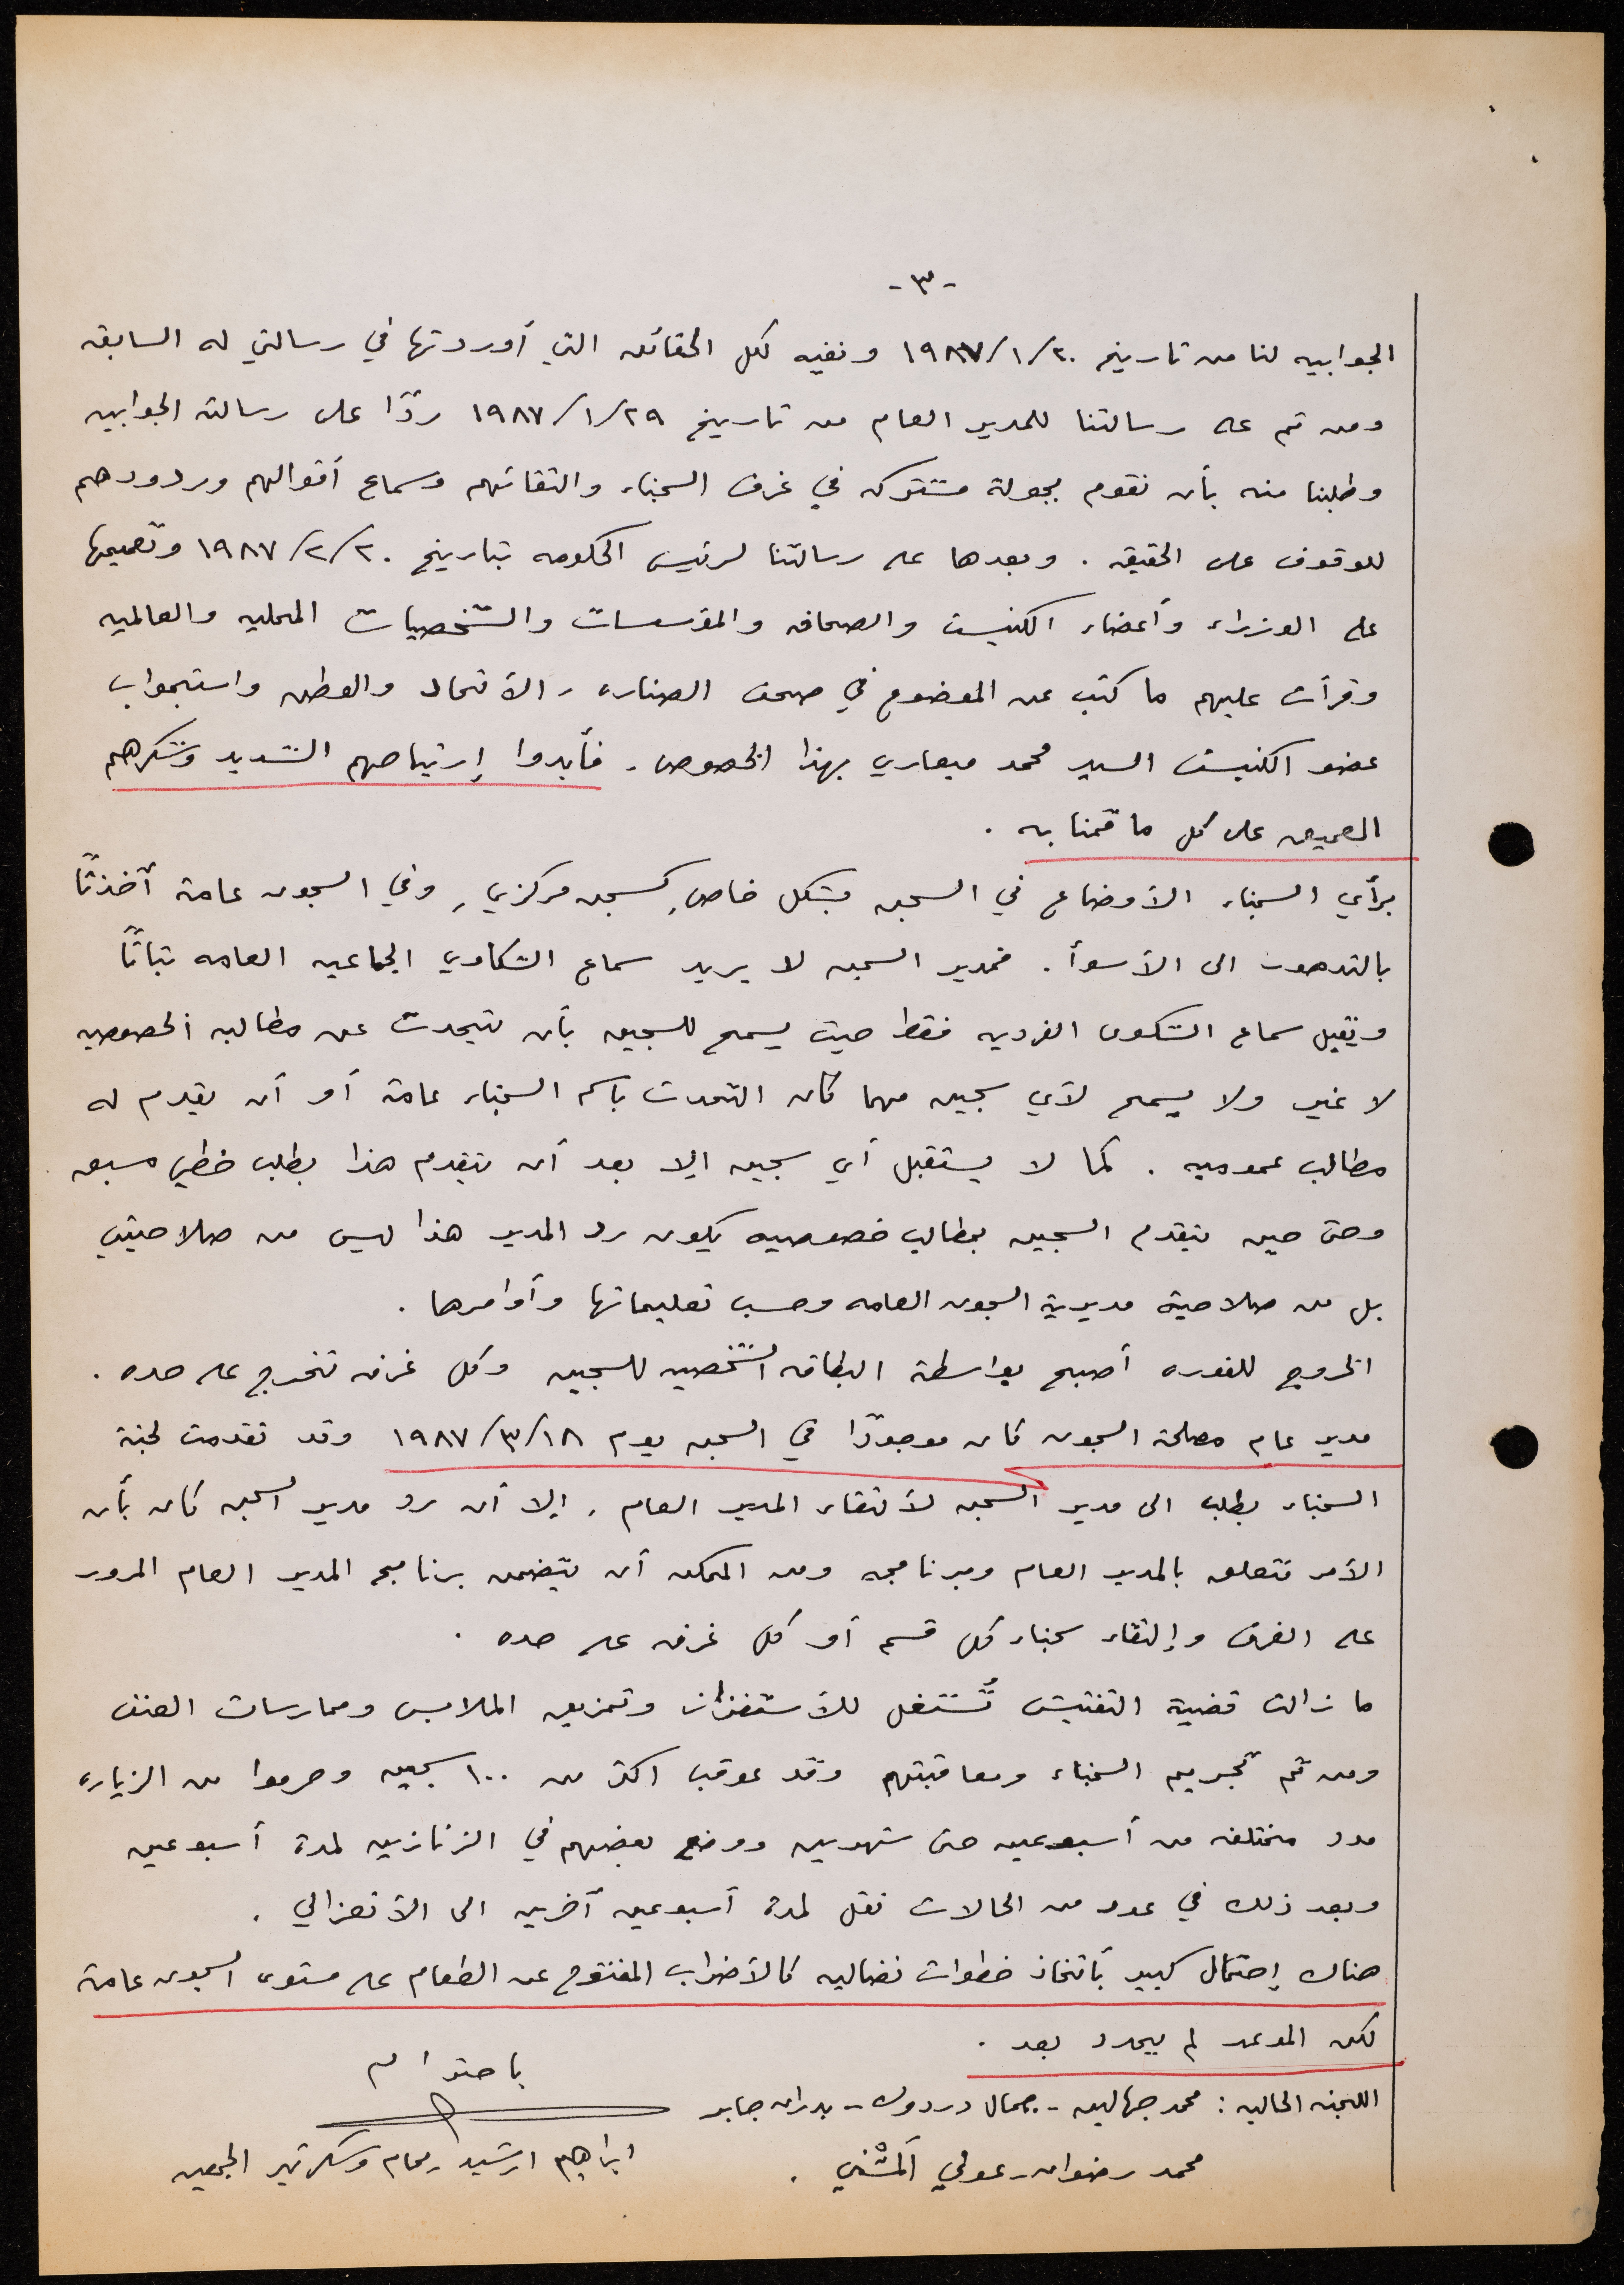 -٣-
الجوابيه لنا من تاريخ ١٩٨٧/١/٢٠ ونفيه لكل الحقائق التي أوردتها في رسالتي له السابقه
ومن ثم على رسالتنا للمدير العام من تاريخ ١٩٨٧/١/٢٩ ردًا على رسالته الجوابيه
وطلبنا منه بأن نقوم بجولة مشتركه في غرف السجناء والتقائهم وسماع أقوالهم وردودهم
للوقوف على الحقيقه . وبعدها على رسالتنا لرئيس الحكومه بتاريخ ١٩٨٧/٢/٢٠ وتعميمها
على الوزراء وأعضاء الكنيست والصحافه والمؤسسات والشخصيات المحليه والعالميه
وقرأت عليهم ما كتب عن الموضوع في صحف الصناره , الأتحاد والوطن واستجواب
عضو الكنيست السيد محمد ميعاري بهذا الخصوص . فأبدوا إرتياحهم الشديد وشكرهم
العميق على كل ما قمنا به .
برأي السجناء الأوضاع في السجن بشكل خاص, كسجن مركزي , وفي السجون عامة آخذتًا
بالتدهور الى الأسوأ . فمدير السجن لا يريد سماع الشكاوي الجماعيه العامه بتاتًا
ويقبل سماع الشكوى الفرديه فقط حيث يسمح للسجين بأن يتحدث عن مطالبه الخصوصيه
لا غير ولا يسمح لأي سجين مهما كان التحدث باسم السجناء عامة أو أن يقدم له
مطالب عموميه . كما لا يستقبل أي سجين الا بعد أن يتقدم هذا بطلب خطي مسبق
وحتى حين يتقدم السجين بمطالب خصوصيه يكون رد المدير هذا ليس من صلاحيتي
بل من صلاحية مديرية السجون العامه وحسب تعليماتها وأوامرها .
الخروج للفوره أصبح بواسطة البطاقه الشخصيه للسجين وكل غرفه تخرج على حده .
مدير عام مصلحة السجون كان موجودًا في السجن يوم ١٩٨٧/٣/١٨ وقد تقدمت لجنة
السجناء بطلب الى مدير السجن لألتقاء المدير العام , إلا أن رد مدير السجن كان بأن
الأمر متعلق بالمدير العام وبرنامجه ومن الممكن أن يتضمن برنامج المدير العام المرور
على الغرف وإلتقاء سجناء كل قسم أو كل غرفه على حده .
ما زالت قضية التفتيش تُستغل للأستفزاز وتمزيق الملابس وممارسات العنف
ومن ثم تجريم السجناء ومعاقبتهم وقد عوقب اكثر من ١٠٠ سجين وحرموا من الزياره
مدد مختلفه من أسبوعين حتى شهرين ووضع بعضهم في الزنازين لمدة أسبوعين
وبعد ذلك في عدد من الحالات نقل لمدة أسبوعين آخرين الى الأنعزالي .
هناك إحتمال كبير بأتخاذ خطوات نضاليه كالأضراب المفتوح عن الطعام على مستوى السجون عامة
لكن الموعد لم يحدد بعد .
باحترام
اللجنه الحاليه : محمد جهالين - جمال دردوك - بدران جابر
محمد رضوان - عوني المشني .
ابراهيم ارشيد محام وسكرتير الجمعيه